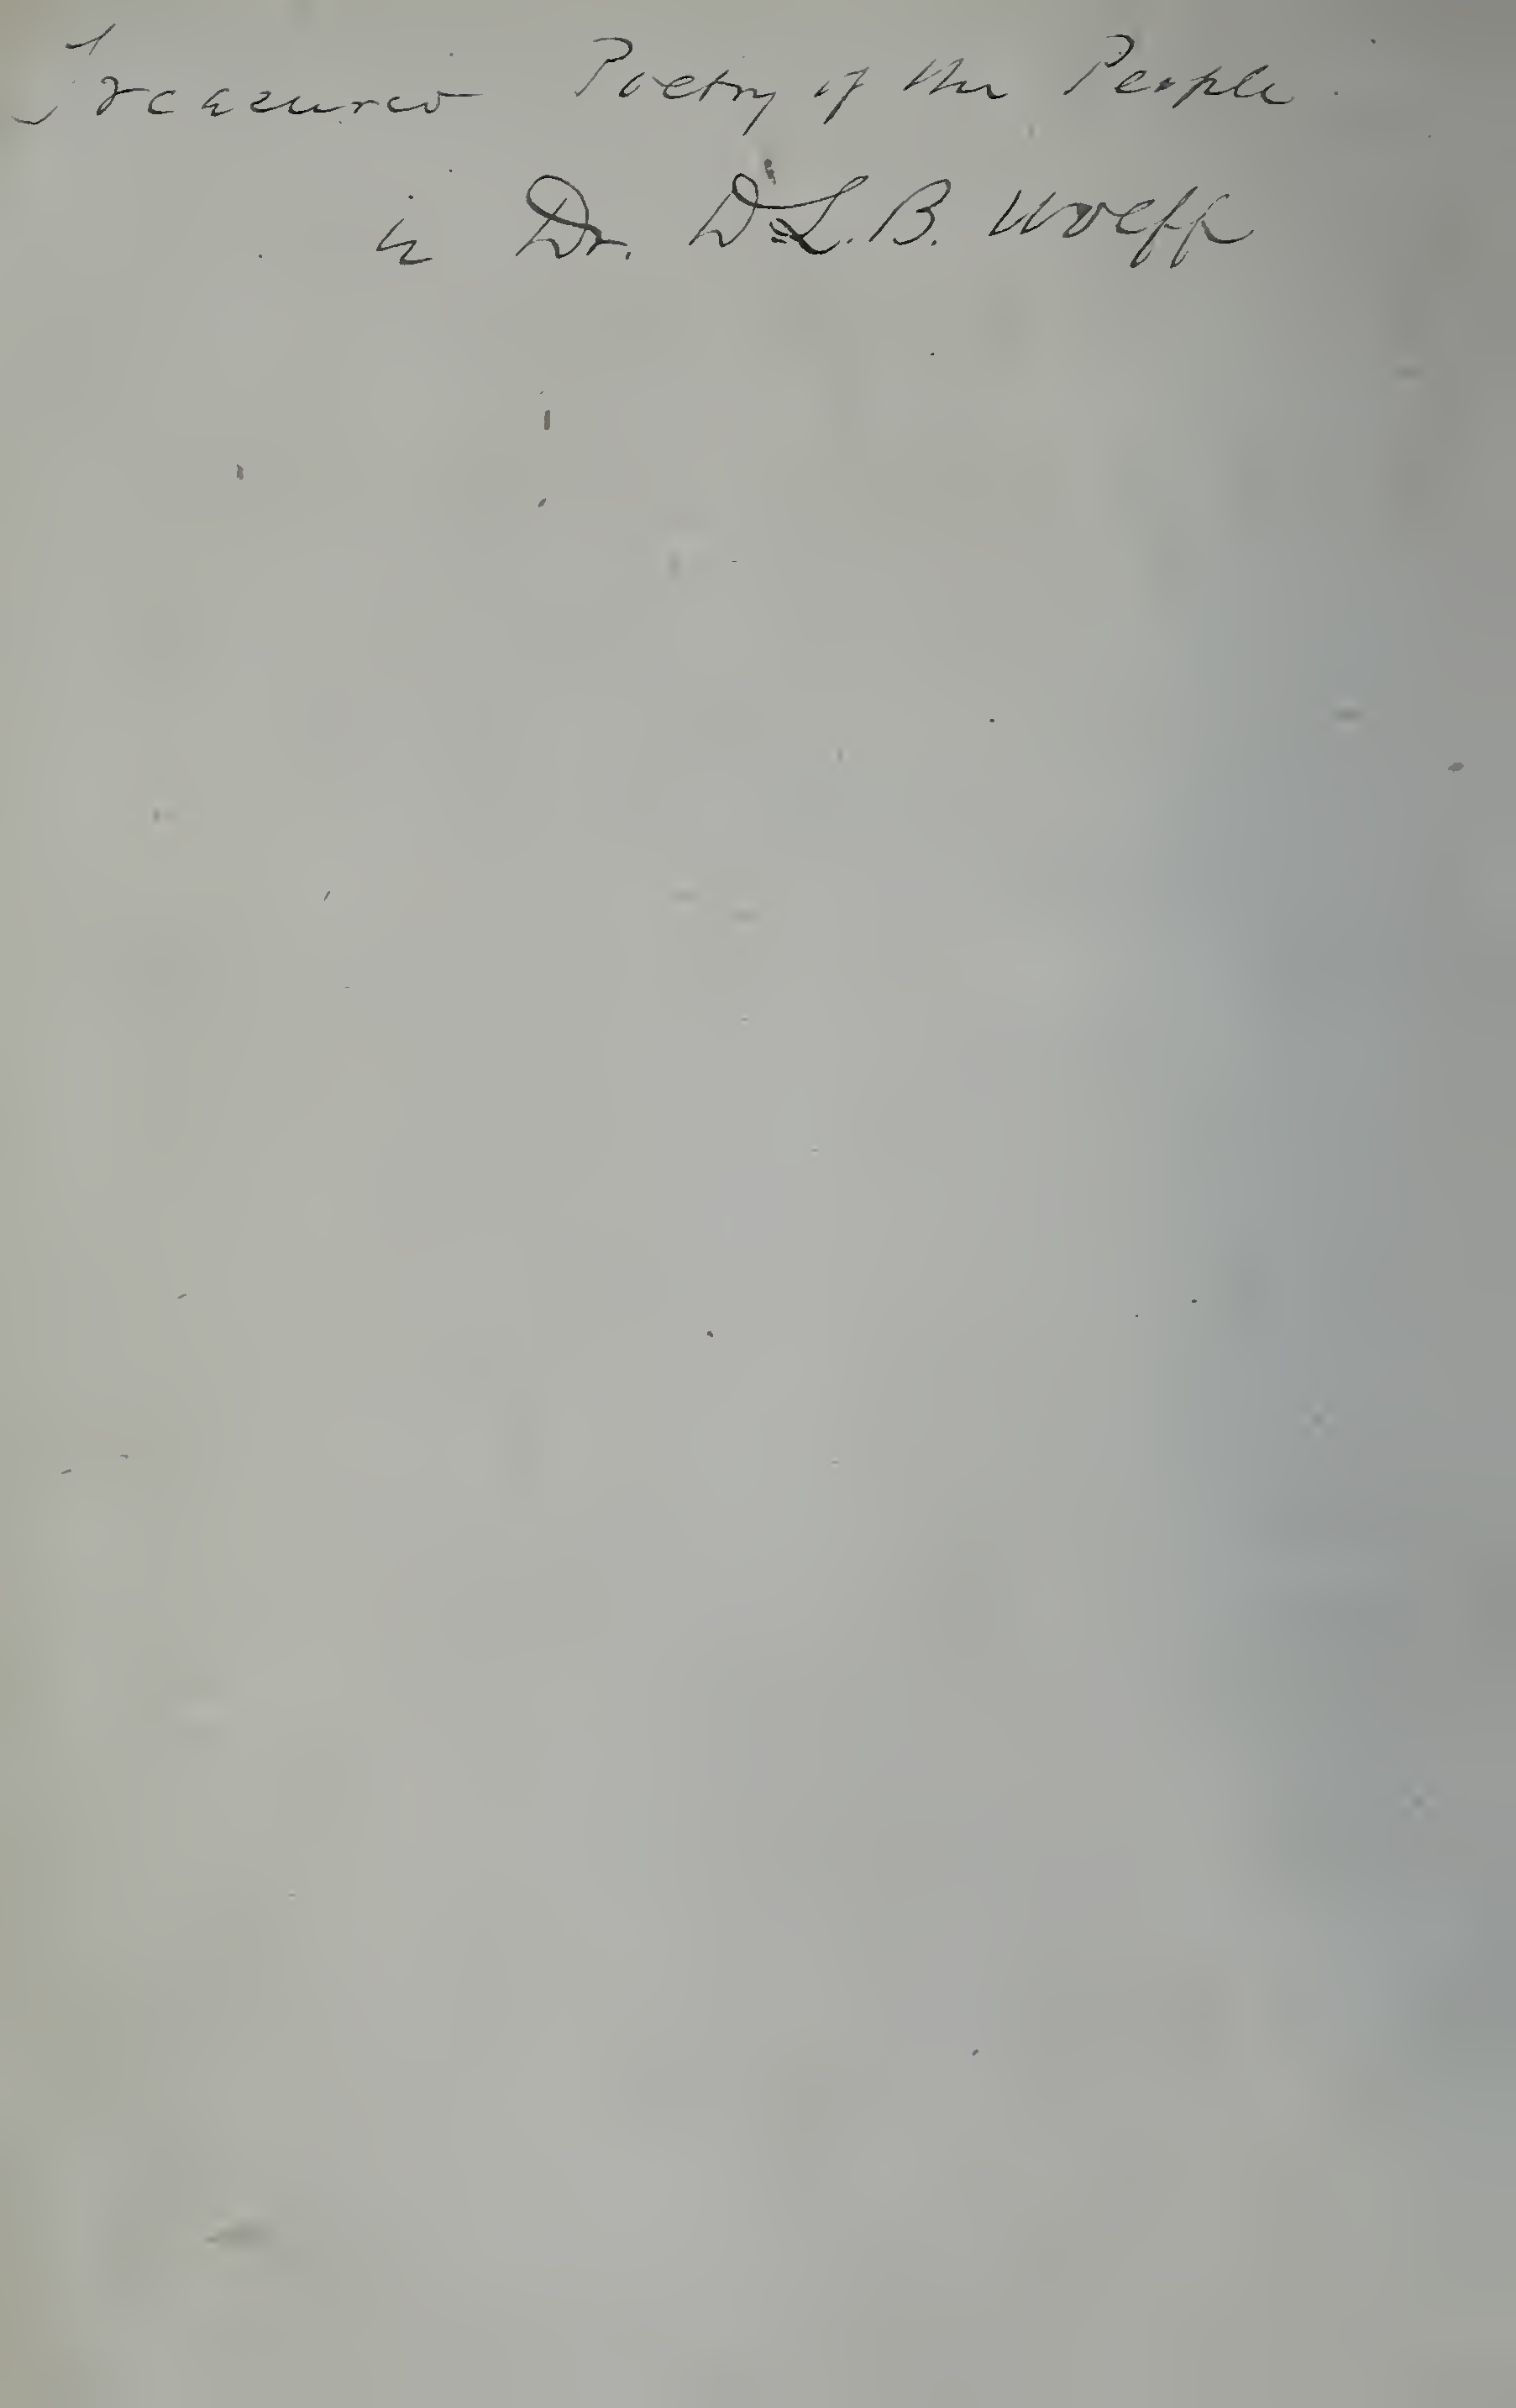 Treasured Poetry of the People.
is Dr. D. L. B. Wolff